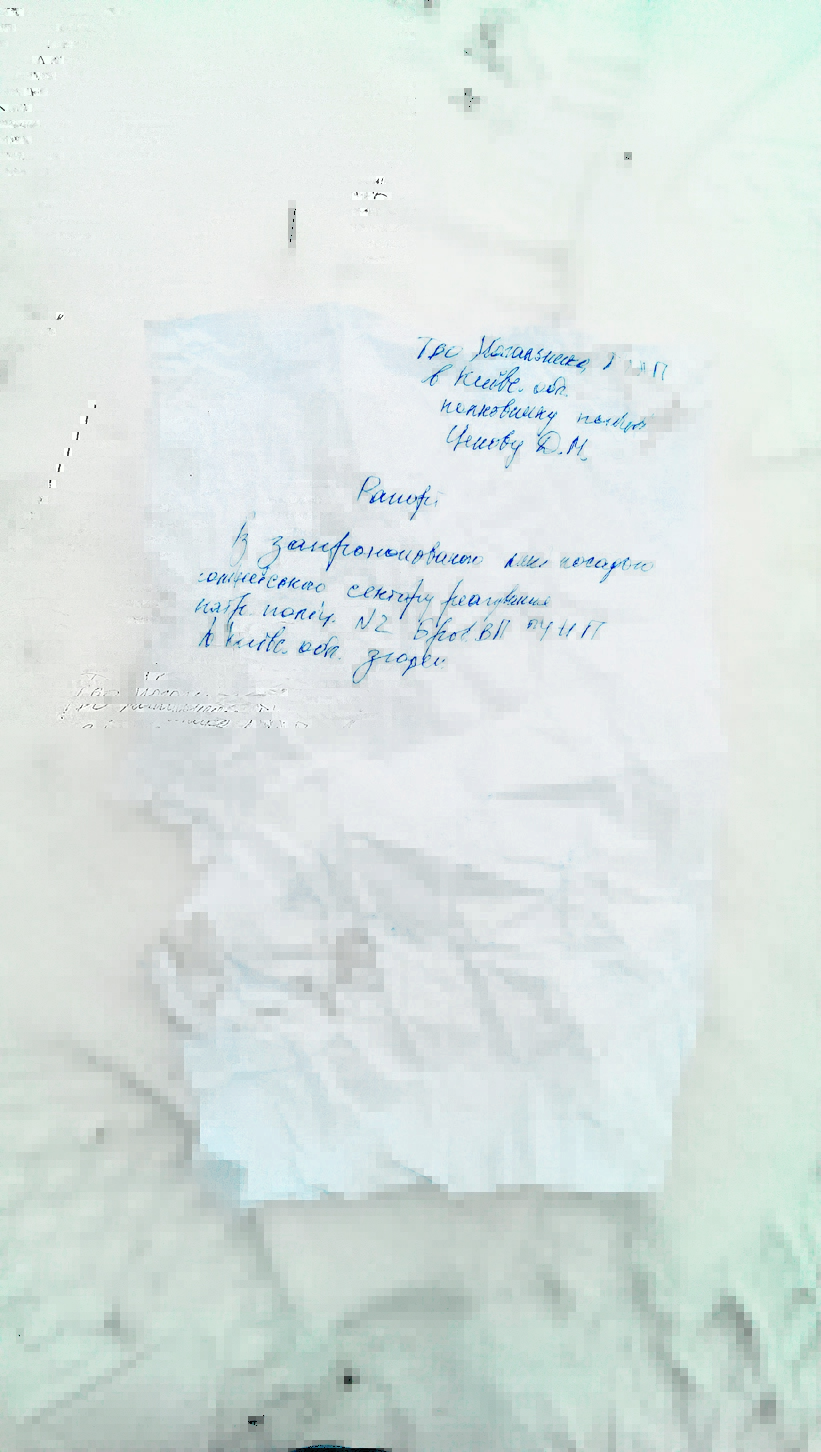 Тво Начальника ГУНП
в Київс. обл.
полковнику поліції
Ценову Д.М.
Рапорт
З запропонованою мені посадою
поліцейського сектору реагування
патр. поліц. №2 Бров ВП ГУНП
в Київс. обл. згоден